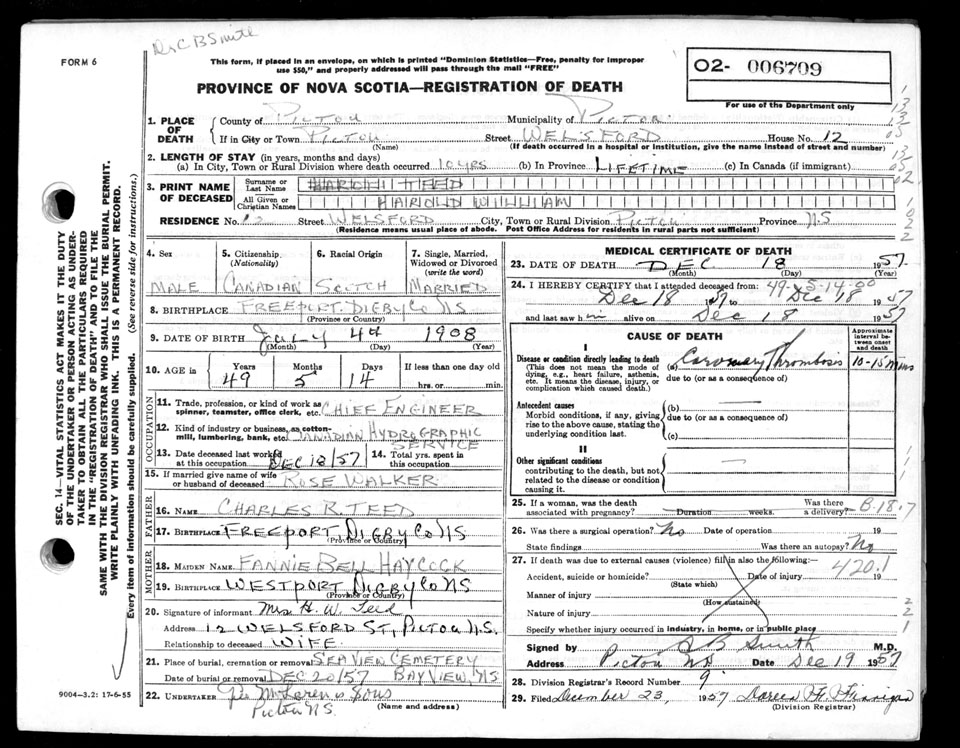 Dr C B Smith
FORM 6
This form, if placed in an envelope, on which is printed "Dominion Statistics—Free, penalty for improper
use $50," and properly addressed will pass through the mail "FREE"
O2- 006709
For use of the Department only
PROVINCE OF NOVA SCOTIA—REGISTRATION OF DEATH
1. PLACE OF DEATH
County of PICTOU Municipality of PICTOU
If in City or Town PICTOU Street WELSFORD House No. 12
(Name) (If death occurred in a hospital or institution, give the name instead of street and number)
2. LENGTH OF STAY (in years, months and days)
(a) In City, Town or Rural Division where death occurred 10 yrs (b) In Province LIFETIME (c) In Canada (if immigrant)
3. PRINT NAME OF DECEASED
Surname or Last Name TEED
All Given or Christian Names HAROLD WILLIAM
RESIDENCE No. 12 Street WELSFORD City, Town or Rural Division PICTOU Province N.S
(Residence means usual place of abode. Post Office Address for residents in rural parts not sufficient)
4. Sex
MALE
5. Citizenship (Nationality)
CANADIAN
6. Racial Origin
SCOTCH
7. Single, Married, Widowed or Divorced (write the word)
MARRIED
8. BIRTHPLACE FREEPORT. DIGBY CO NS
(Province or Country)
9. DATE OF BIRTH July 4th 1908
(Month) (Day) (Year)
10. AGE in Years 49 Months 5 Days 14 If less than one day old
hrs. or min.
OCCUPATION
11. Trade, profession, or kind of work as
spinner, teamster, office clerk, etc. CHIEF ENGINEER
12. Kind of industry or business, as cotton-
mill, lumbering, bank, etc. CANADIAN HYDROGRAPHIC SERVICE
13. Date deceased last worked at this occupation DEC 18/57
14. Total yrs. spent in this occupation
15. If married give name of wife
or husband of deceased ROSE WALKER
FATHER
16. NAME CHARLES R. TEED
17. BIRTHPLACE FREEPORT DIGBY CO NS
(Province or Country)
MOTHER
18. MAIDEN NAME FANNIE BELL HAYCOCK
19. BIRTHPLACE WESTPORT DIGBY CO NS
(Province or Country)
20. Signature of informant Mrs H. W. Teed
Address 12 WELSFORD ST, PICTOU N.S.
Relationship to deceased WIFE
21. Place of burial, cremation or removal SEAVIEW CEMETERY
Date of burial or removal DEC 20/57 BAYVIEW, NS
22. UNDERTAKER McLaren & Sons
Pictou NS (Name and address)
9004—3.2: 17-6-55
SEC. 14—VITAL STATISTICS ACT MAKES IT THE DUTY
OF THE UNDERTAKER OR PERSON ACTING AS UNDER-
TAKER TO OBTAIN ALL THE PARTICULARS REQUIRED
IN THE "REGISTRATION OF DEATH" AND TO FILE THE
SAME WITH THE DIVISION REGISTRAR WHO SHALL ISSUE THE BURIAL PERMIT.
WRITE PLAINLY WITH UNFADING INK. THIS IS A PERMANENT RECORD.
Every item of information should be carefully supplied. (See reverse side for instructions.)
MEDICAL CERTIFICATE OF DEATH
23. DATE OF DEATH DEC 18 1957
(Month) (Day) (Year)
24. I HEREBY CERTIFY that I attended deceased from: 49-5-14-00
Dec 18 1957 to Dec 18 1957
and last saw him alive on Dec 18 1957
CAUSE OF DEATH
Approximate interval between onset and death
I
Disease or condition directly leading to death
(This does not mean the mode of
dying, e.g., heart failure, asthenia,
etc. It means the disease, injury, or
complication which caused death.)
(a) Coronary Thrombosis 10-15 mins
due to (or as a consequence of)
Antecedent causes
Morbid conditions, if any, giving
rise to the above cause, stating the
underlying condition last.
(b) —
due to (or as a consequence of)
(c)
II
Other significant conditions
contributing to the death, but not
related to the disease or condition
causing it.
25. If a woman, was the death
associated with pregnancy? Duration weeks. Was there a delivery?
B-18.7
26. Was there a surgical operation? No Date of operation 19
State findings Was there an autopsy? No
27. If death was due to external causes (violence) fill in also the following:
420.1
Accident, suicide or homicide? Date of injury 19
(State which)
Manner of injury
(How sustained)
Nature of injury
Specify whether injury occurred in industry, in home, or in public place
Signed by C B Smith M.D.
Address Pictou NS Date Dec 19 1957
28. Division Registrar's Record Number 9
29. Filed December 23, 1957 Doreen
(Division Registrar)